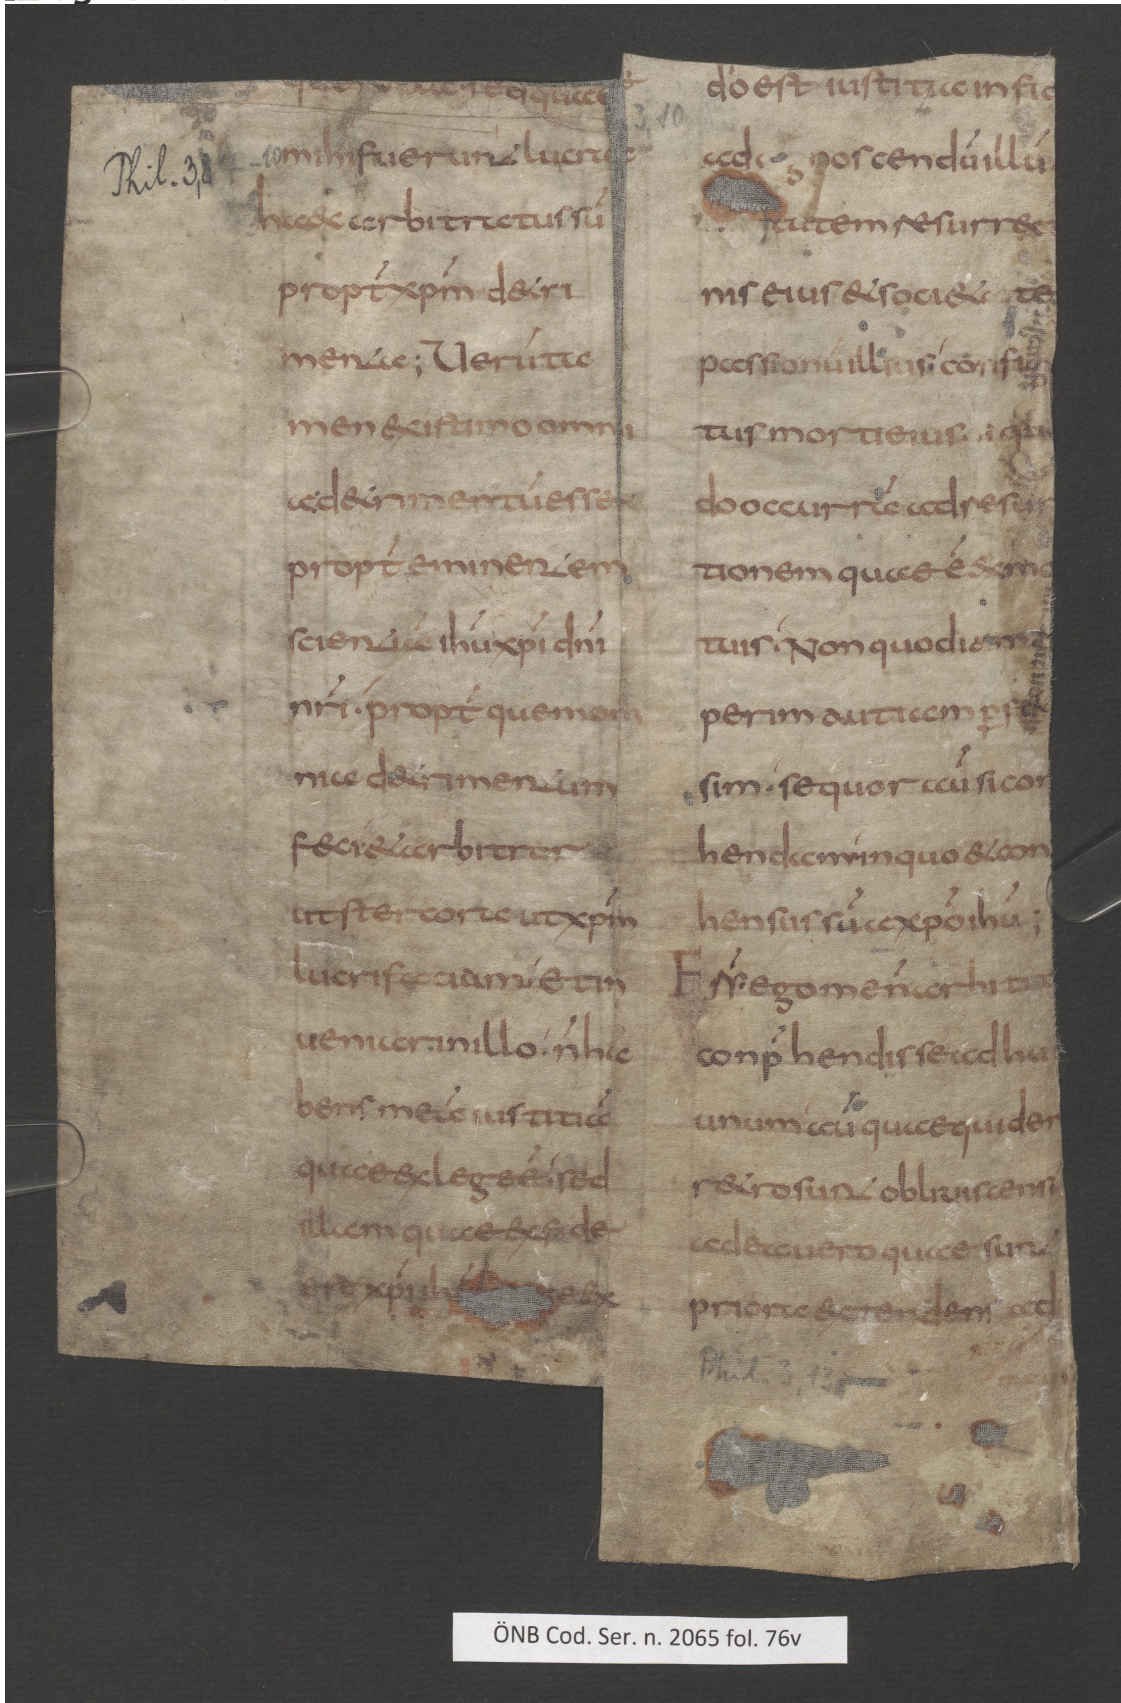 Phil. 3,8
-10
mihi fuerunt lucra
haec arbitratus sū
propt̄ xp̄m detri
menta; Verūta
men existimo omni
a detrimentū esse
propt̄ eminentem
scientiā ih̄u xp̄i dn̄i
nr̄i · propt̄ quem om
nia detrimentum
feci et arbitror
ut stercora ut xp̄m
lucrifaciam · et in
ueniar in illo · n̄ ha
bens meā iustitiā
quae ex lege ē · sed
illam quae ex fide
est xp̄i ex
3,10
d̄o est iustitia in fid
ad agnoscendū illū
tutem resurrec
nis eius et societate
passionū illius · config
tus morti eius · si quo
do occurrā ad resur
tionem quae ē ex mo
tuis · Non quod iam
perim aut iam perf
sim · sequor aū si con
hendam in quo et con
hensus sū a xp̄o ih̄u ;
Fr̄s · ego me n̄ arbitr
conp̄hendisse ad hu
unum aū quae quidem
retro sunt obliuiscens
ad ea uero quae sunt
priora extendens ad
Phil. 3, 13
ÖNB Cod. Ser. n. 2065 fol. 76v